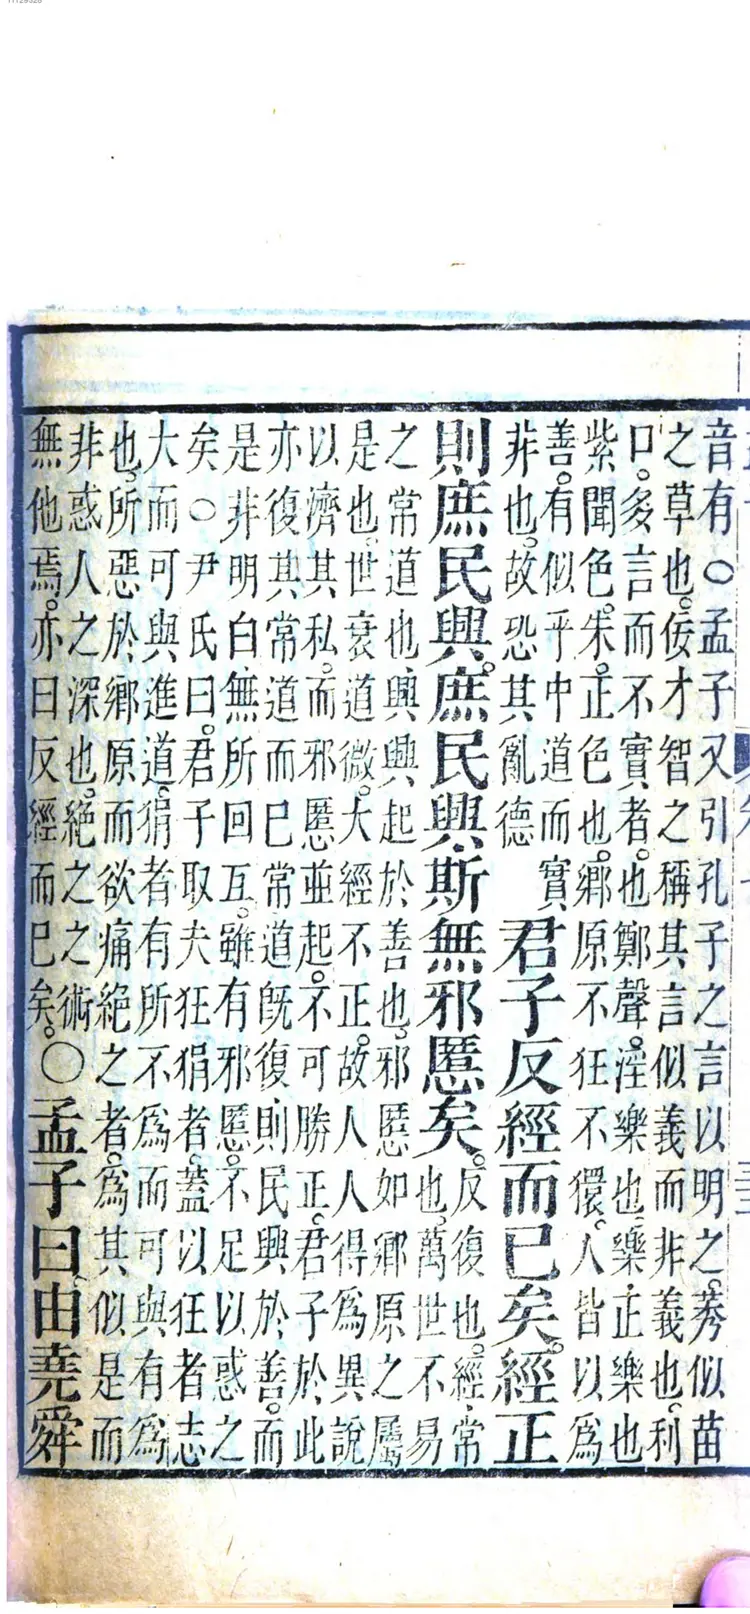 音有○孟子又引孔子之言以明之。莠似苗
之草也。佞才智之稱其言似義而非義也。利
口。多言而不實者。也鄭聲。淫樂也樂正樂也
紫聞色。朱。正色也。鄉原不狂不獧。人皆以爲
善。有似乎中道而實
非也。故恐其亂德
君子反經而已矣。經正
則庶民興。庶民興。斯無邪慝矣。
反復也。經常
也。萬世不易
之常道也興興起於善也。邪慝如鄉原之屬
是也。世衰道微。大經不正。故人人得爲異說
以濟其私。而邪慝並起。不可勝正。君子於此
亦復其常道而已常道旣復則民興於善。而
是非明白無所回互。雖有邪慝。不足以惑之
矣○尹氏曰。君子取夫狂狷者。蓋以狂者志
大而可與進道。狷者有所不爲而可與有爲
也。所惡於鄉原而欲痛絕之者。爲其似是而
非惑人之深也。絕之之術
無他焉。亦曰反經而已矣。
○孟子曰。由堯舜